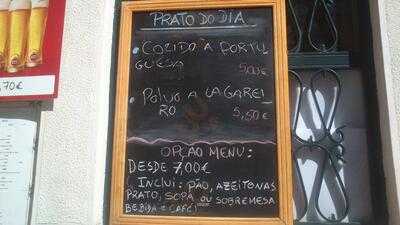 PRATO DO DIA
• COZIDO À PORTU
GUESA
5,00€
• POLVO A LAGAREI
RO 5,50€
OPÇÃO MENU:
DESDE 7,00€
(INCLUI: PÃO, AZEITONAS
PRATO, SOPA OU SOBREMESA
BEBIDA E CAFÉ)
,70€